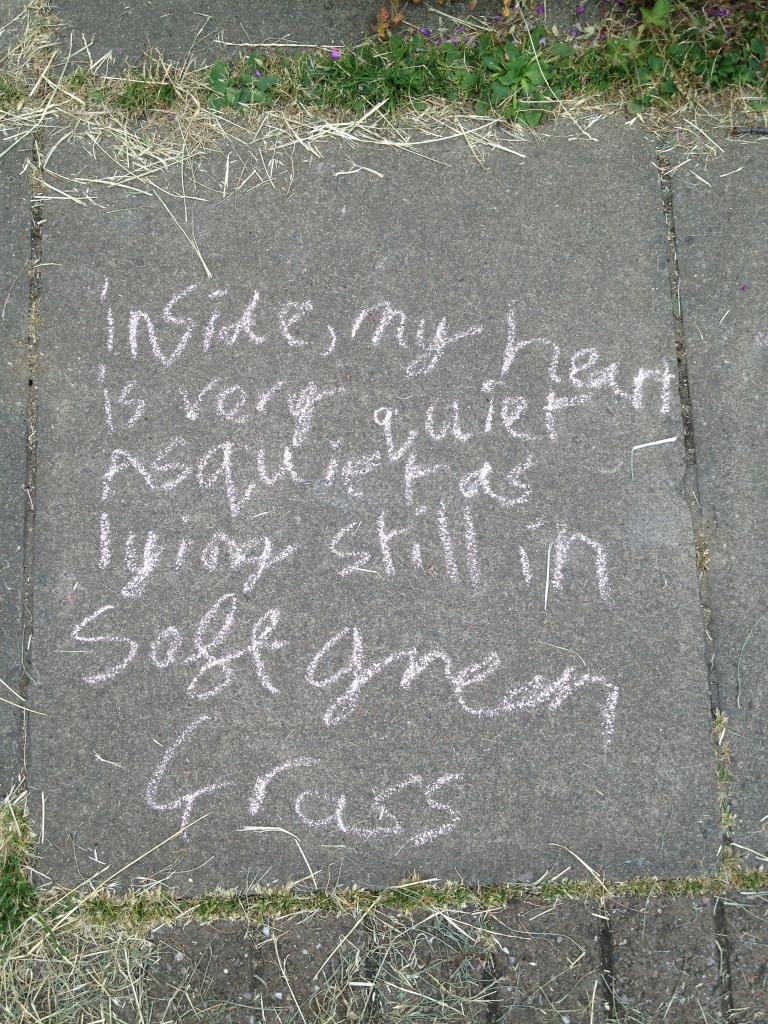 inside, my heart
is very quiet
As quiet as
lying still in
Soft green
Grass